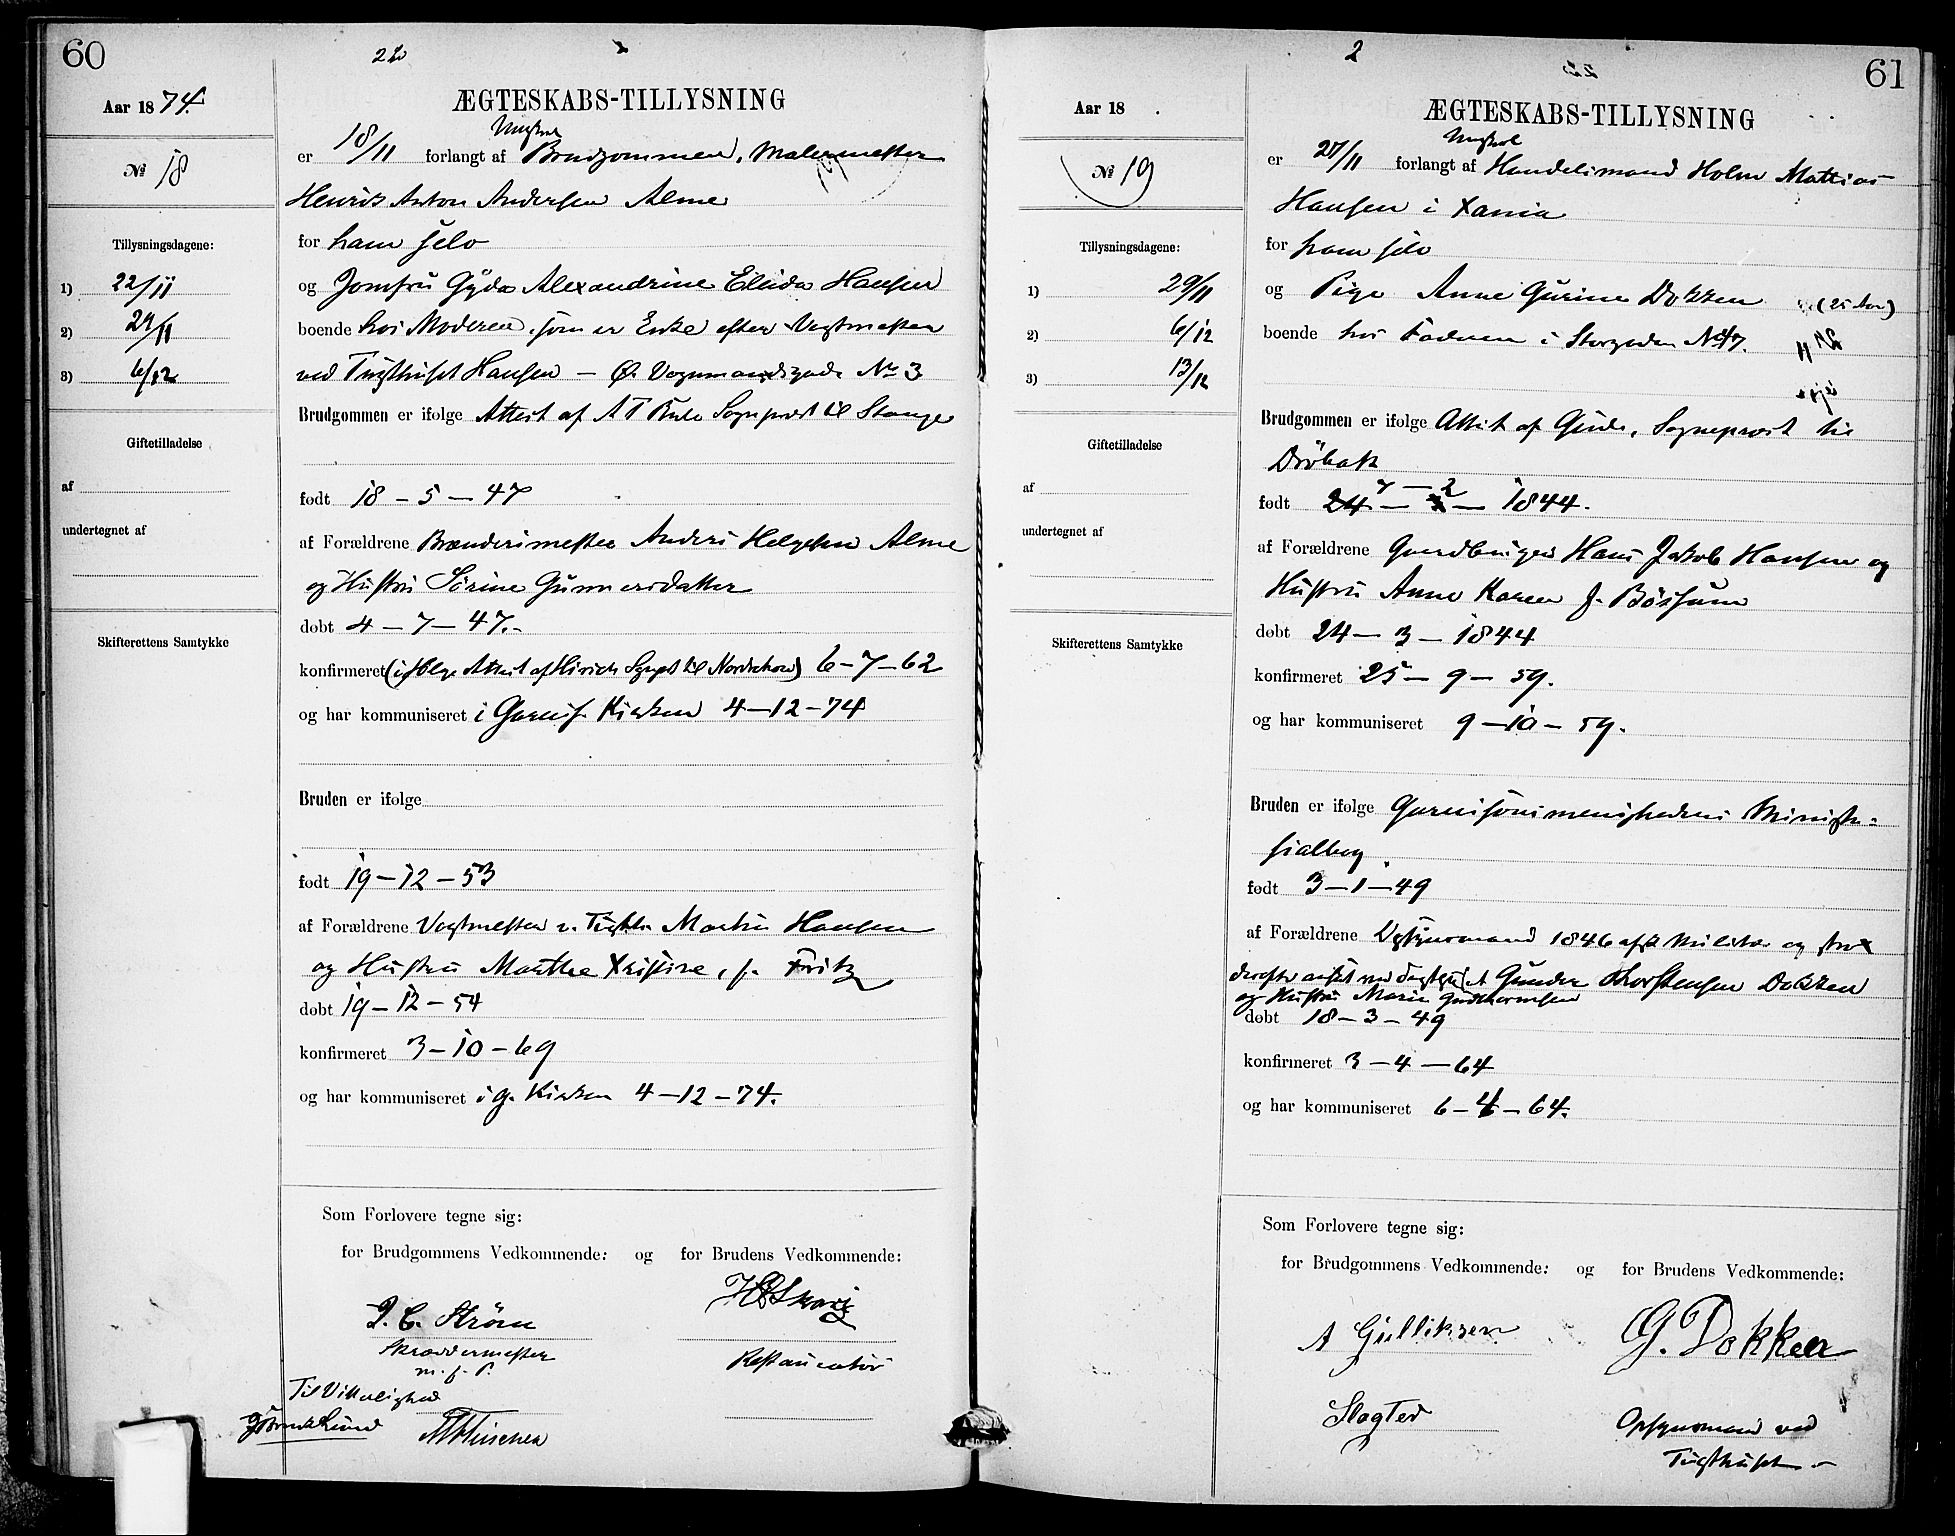 60
2
Aar 1874.
ÆGTESKABS-TILLYSNING
№ 18
Ungkarl
er 18/11 forlangt af Brudgommen, Malermester
Henrik Anton Andersen Alme
Tillysningsdagene:
for ham selv
1) 22/11
og Jomfru Gyda Alexandrine Elida Hansen
2) 29/11
boende hos Moderen, som er Enke efter Vagtmester
3) 6/12
ved Tugthuset Hansen — Ø. Vognmandsgade No 3
Brudgommen er ifølge Attest af Sognepræst til Stange
Giftetilladelse
af
født 18 – 5 – 47
undertegnet af
af Forældrene Brænderimester Anders Helgesen Alme
og Hustru Sørine Gunnersdatter
døbt 4 – 7 – 47.
Skifterettens Samtykke
konfirmeret (ifølge Attest af Sgpst til Nordrehov) 6–7–62
og har kommuniseret i Garnis. Kirken 4–12–74
Bruden er ifølge
født 19–12–53
af Forældrene Vagtmester v. Tugth. Martin Hansen
og Hustru Marthe Xristine, f. Fritz
døbt 19–12–54
konfirmeret 3–10–69
og har kommuniseret i G. Kirken 4–12–74.
Som Forlovere tegne sig:
for Brudgommens Vedkommende: og for Brudens Vedkommende:
J. C. Strøm
Skræddermester
m. f. P.
Restauratør
Til Vitterlighed
61
2
Aar 18 .
ÆGTESKABS-TILLYSNING
№ 19
Ungkarl
er 27/11 forlangt af Handelsmand Holm Mattias
Hansen i Xania
Tillysningsdagene:
for ham selv
1) 29/11
og Pige Anne Gurine Dokken (25 Aar)
2) 6/12
boende hos Faderen i Storgaden No 47.
3) 13/12
Brudgommen er ifølge Attest af Gude, Sognepræst til
Drøbak
Giftetilladelse
af
7 – 2
født 24 – 3 – 1844.
undertegnet af
af Forældrene Gaardbruger Hans Jakob Hansen og
Hustru Anne Karen f. Børsum
døbt 24 – 3 – 1844
Skifterettens Samtykke
konfirmeret 25 – 9 – 59.
og har kommuniseret 9 – 10 – 59.
Bruden er ifølge Garnisonsmenighedens Ministe-
rialbog.
født 3 – 1 – 49
af Forældrene Opsynsmand 1846 afsk Militær og strax
derefter ansat ved Tugthuset Gunder Thorstensen Dokken
og Hustru Marie Guthormsen
døbt 18 – 3 – 49
konfirmeret 3 – 4 – 64
og har kommuniseret 6 – 4 – 64.
Som Forlovere tegne sig:
for Brudgommens Vedkommende: og for Brudens Vedkommende:
A Gulliksen
G. Dokken
Slagter
Opsynsmand ved
Tugthuset –